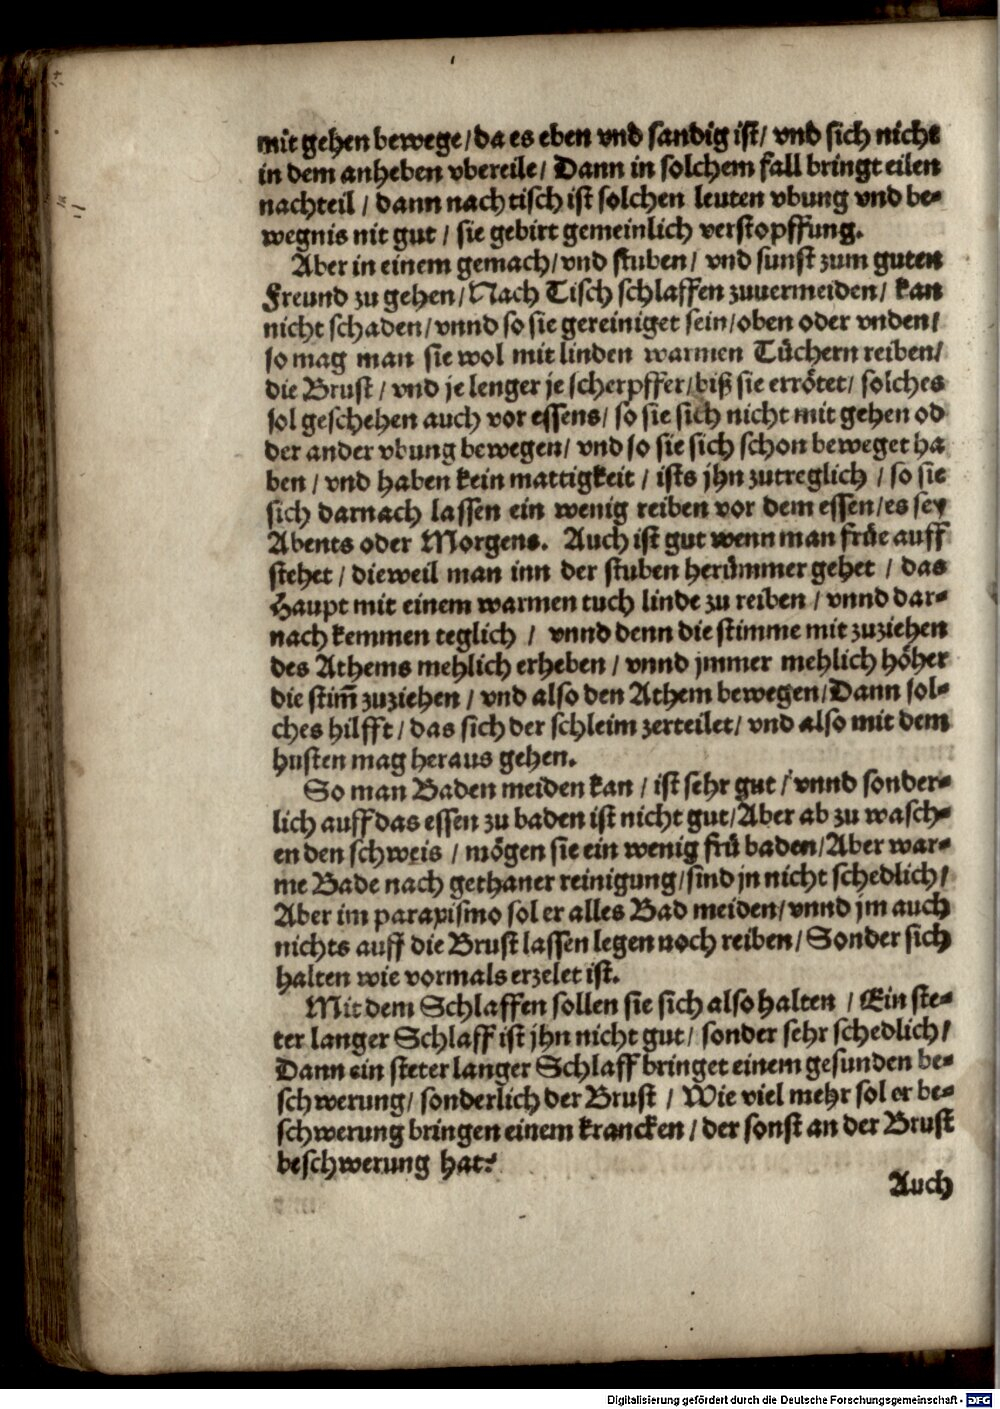 mit gehen bewege / da es eben vnd sandig ist / vnd sich nicht
in dem anheben vbereile / Dann in solchem fall bringt eilen
nachteil / dann nach tisch ist solchen leuten vbung vnd be-
wegnis nit gut / sie gebirt gemeinlich verstopffung.
Aber in einem gemach / vnd stuben / vnd sunst zum guten
Freund zu gehen / Nach Tisch schlaffen zuuermeiden / kan
nicht schaden / vnnd so sie gereiniget sein / oben oder vnden /
so mag man sie wol mit linden warmen Tüchern reiben /
die Brust / vnd je lenger je scherpffer / biß sie errötet / solches
sol geschehen auch vor essens / so sie sich nicht mit gehen od
der ander vbung bewegen / vnd so sie sich schon beweget ha
ben / vnd haben kein mattigkeit / ists jhn zutreglich / so sie
sich darnach lassen ein wenig reiben vor dem essen / es sey
Abents oder Morgens. Auch ist gut wenn man früe auff
stehet / dieweil man inn der stuben herümmer gehet / das
Haupt mit einem warmen tuch linde zu reiben / vnnd dar-
nach kemmen teglich / vnnd denn die stimme mit zuziehen
des Athems mehlich erheben / vnnd jmmer mehlich höher
die stim̄ zuziehen / vnd also den Athem bewegen / Dann sol-
ches hilfft / das sich der schleim zerteilet / vnd also mit dem
husten mag heraus gehen.
So man Baden meiden kan / ist sehr gut / vnnd sonder-
lich auff das essen zu baden ist nicht gut / Aber ab zu wasch-
en den schweis / mögen sie ein wenig frü baden / Aber war-
me Bade nach gethaner reinigung / sind jn nicht schedlich /
Aber im paraxismo sol er alles Bad meiden / vnnd jm auch
nichts auff die Brust lassen legen noch reiben / Sonder sich
halten wie vormals erzelet ist.
Mit dem Schlaffen sollen sie sich also halten / Ein ste-
ter langer Schlaff ist jhn nicht gut / sonder sehr schedlich /
Dann ein steter langer Schlaff bringet einem gesunden be-
schwerung / sonderlich der Brust / Wie viel mehr sol er be-
schwerung bringen einem krancken / der sonst an der Brust
beschwerung hat?
Auch
Digitalisierung gefördert durch die Deutsche Forschungsgemeinschaft - DFG